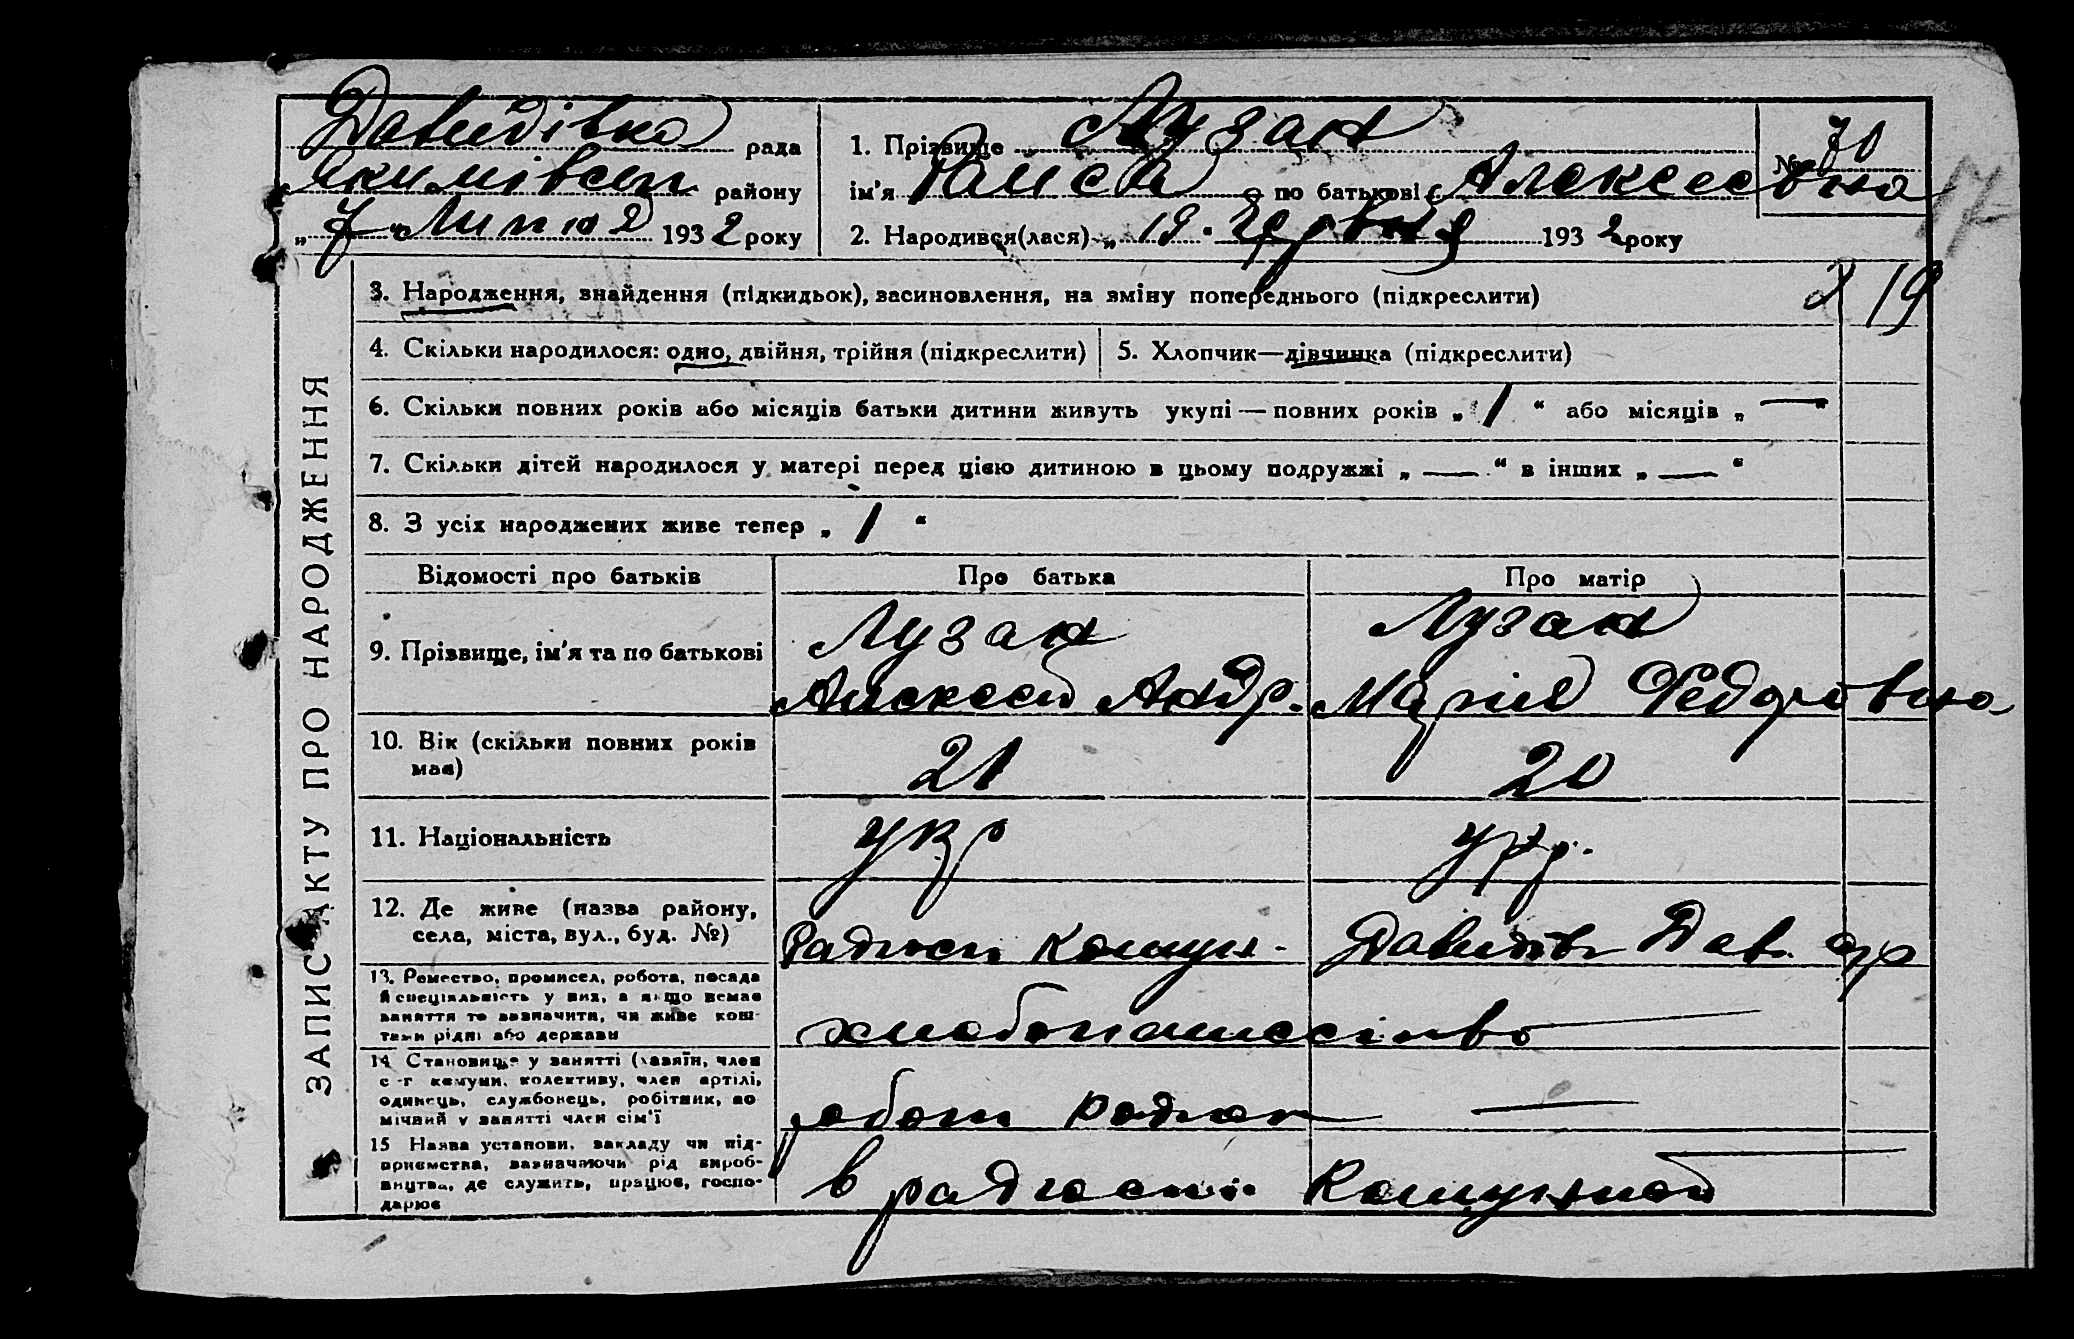 Давидівка рада
Якимівськ району
„ 7 “ Липня 1932 року
1. Прізвище Лузан
ім'я Раиса по батькові Алексеевна
№ 70
17
2. Народився(лася) „ 19. Червня 1932 року
3. Народження, знайдення (підкидьок), засиновлення, на зміну попереднього (підкреслити)
2 19
4. Скільки народилося: одно, двійня, трійня (підкреслити)
5. Хлопчик—дівчинка (підкреслити)
6. Скільки повних років або місяців батьки дитини живуть укупі — повних років „ 1 “ або місяців „ — “
7. Скільки дітей народилося у матері перед цією дитиною в цьому подружжі „ — “ в інших „ — “
8. З усіх народжених живе тепер „ 1 “
ЗАПИС АКТУ ПРО НАРОДЖЕННЯ
Відомості про батьків
Про батька
Про матір
9. Прізвище, ім'я та по батькові
Лузан
Алексей Андр.
Лузан
Марія Федоровна
10. Вік (скільки повних років
має)
21
20
11. Національність
укр
укр.
12. Де живе (назва району,
села, міста, вул., буд. №)
Радгосп Комун.
Давидів
13. Ремество, промисел, робота, посада
й спеціяльність у них, а якщо немає
заняття то зазначити, чи живе кош-
тами рідні або держави
хлебопашество —
14. Становище у занятті (хазяїн, член
с.-г комуни, колективу, член артілі,
одинець, службонець, робітник, по
мічний у занятті член сім'ї
робот —
15 Назва установи, закладу чи під-
приємства, зазначаючи рід вироб-
ництва, де служить, працює, госпо-
дарює
в радгоспі